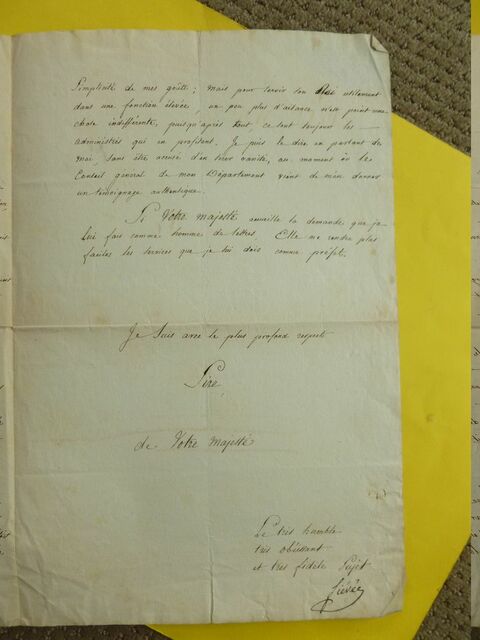 Simplicité de mes goûts; mais pour servir son Roi utilement
dans une fonction élevée, un peu plus d'aisance n'est point une
chose indifférente, puisqu'après tout ce sont toujours les
administrés qui en profitent. Je puis le dire en parlant de
moi sans être accusé d'en tirer vanité, au moment où le
Conseil général de mon Département vient de m'en donner
un témoignage authentique.
Si Votre majesté accueille la demande que je
lui fais comme homme de lettres, Elle me rendra plus
faciles les services que je lui dois comme préfet.
Je suis avec le plus profond respect
Sire,
de Votre majesté
Le très humble
très obéissant
et très fidèle Sujet
Fiévée